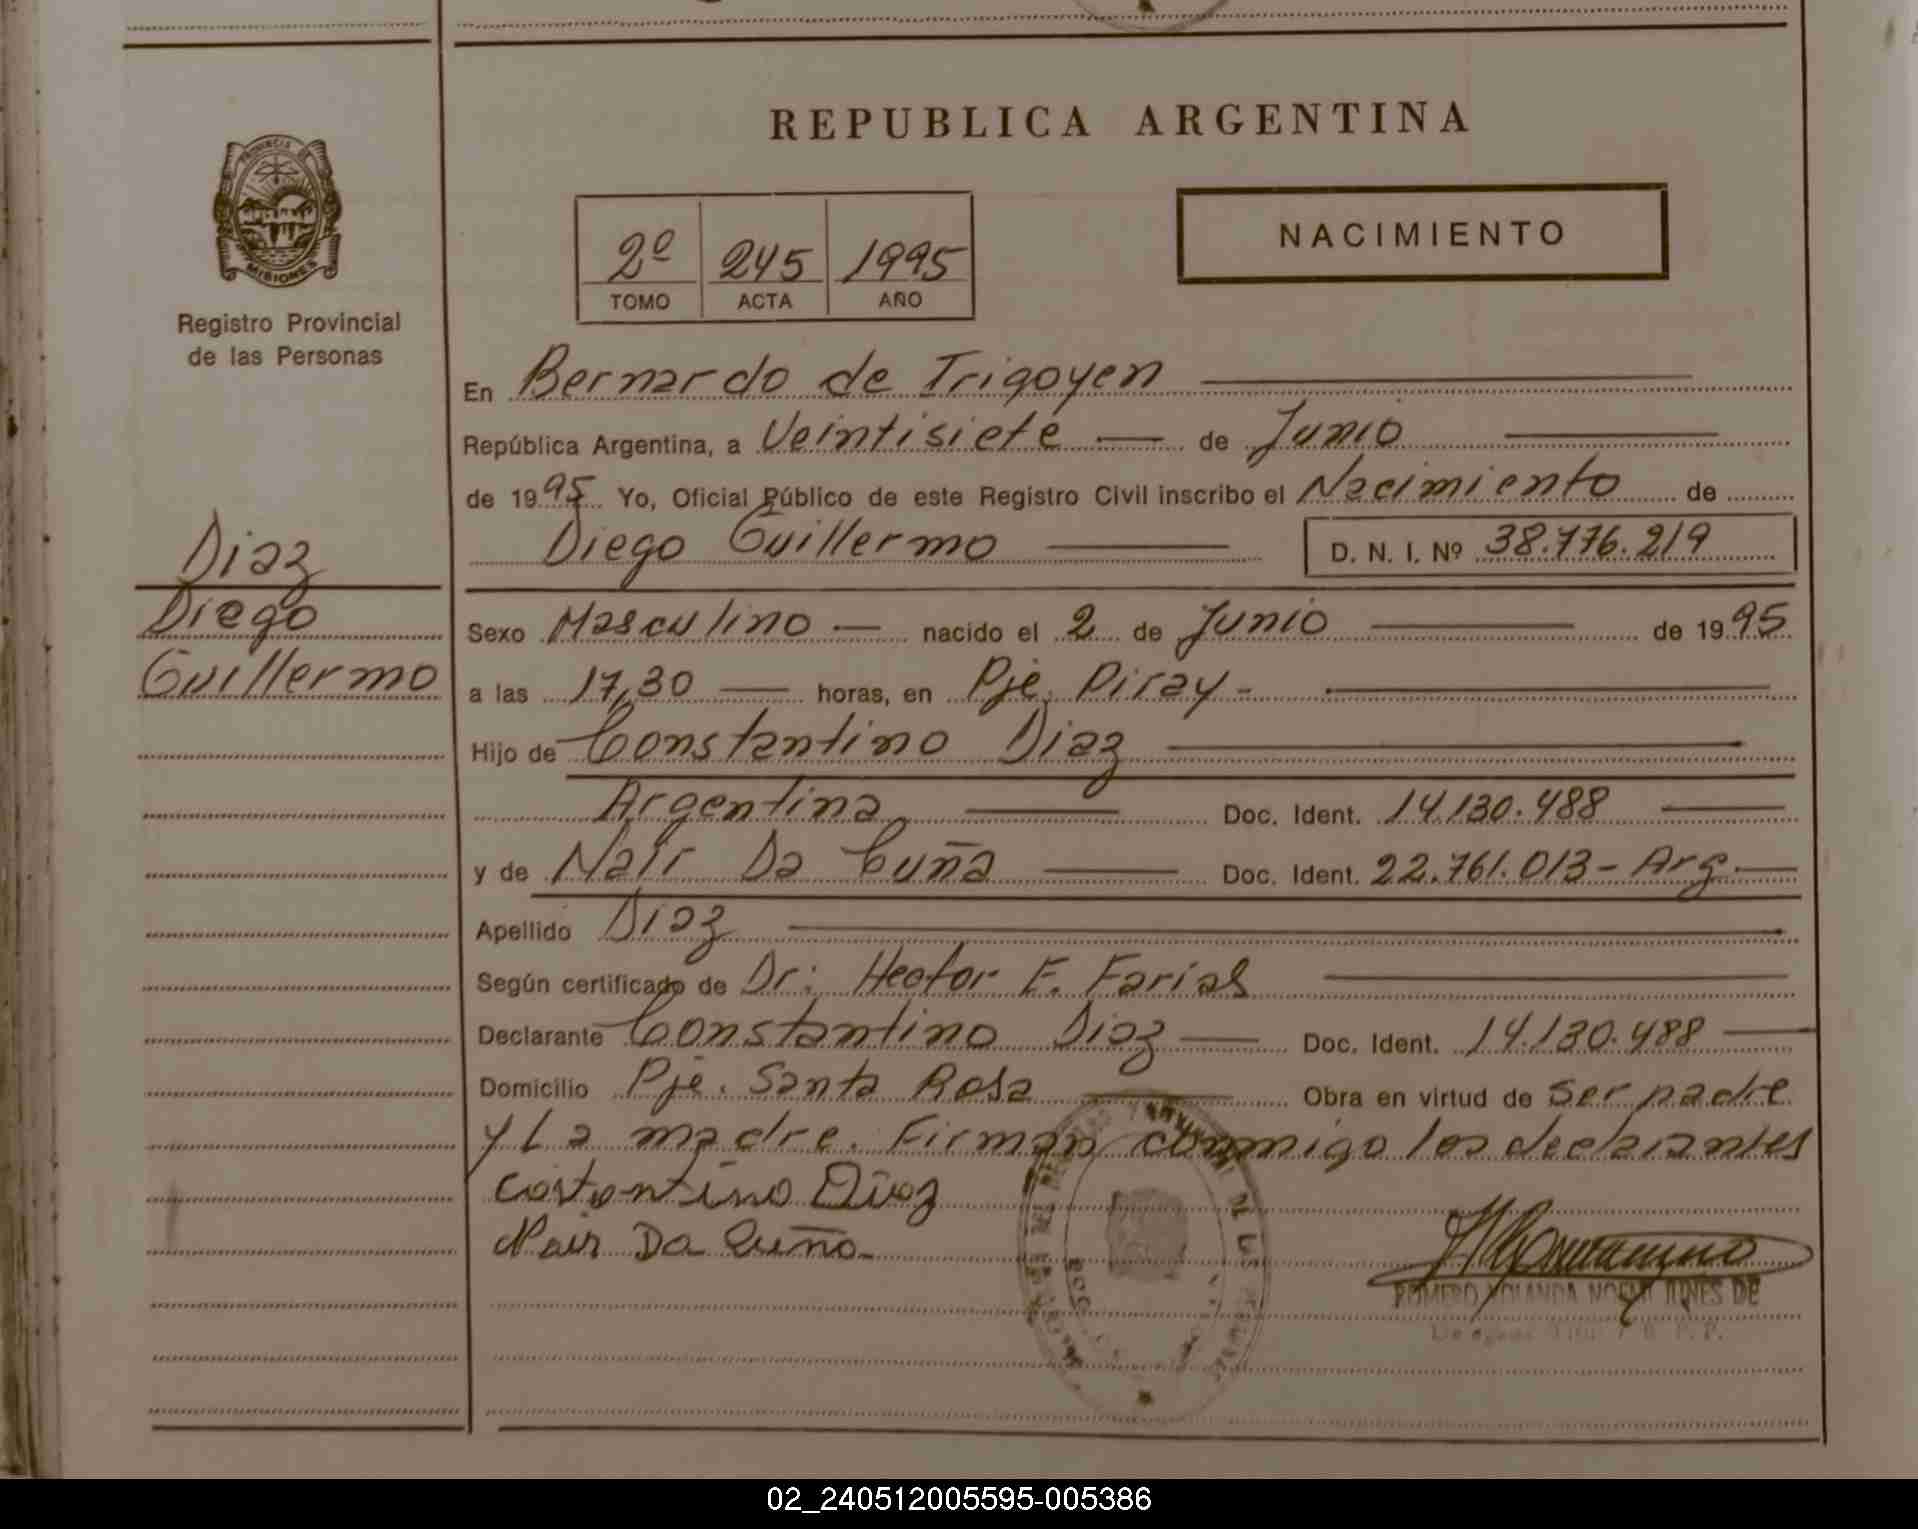 REPUBLICA ARGENTINA
PROVINCIA DE
MISIONES
Registro Provincial
de las Personas
2º 245 1995
TOMO ACTA AÑO
NACIMIENTO
En Bernardo de Irigoyen
República Argentina, a Veintisiete de Junio
de 1995 Yo, Oficial Público de este Registro Civil inscribo el Nacimiento de
Diego Guillermo D. N. I. Nº 38.776.219
Diaz
Diego
Guillermo
Sexo Masculino nacido el 2 de Junio de 1995
a las 17,30 horas, en Pje. Piray -
Hijo de Constantino Diaz
Argentina Doc. Ident. 14.130.488
y de Nair Da Cuña Doc. Ident. 22.761.013 - Arg.
Apellido Diaz
Según certificado de Dr: Hector E. Farias
Declarante Constantino Diaz Doc. Ident. 14.130.488
Domicilio Pje. Santa Rosa Obra en virtud de ser padre
y La madre. Firman conmigo los declarantes
Costantino Diaz
Nair Da Cuña
ROMERO YOLANDA NOEMI DE
02_240512005595-005386